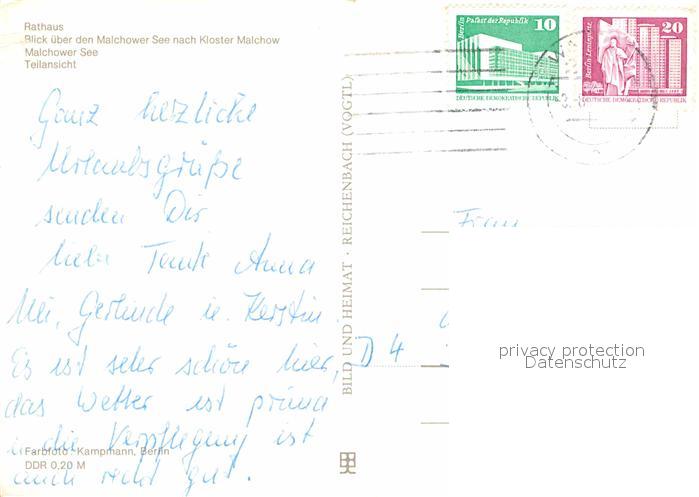 Rathaus
Blick über den Malchower See nach Kloster Malchow
Malchower See
Teilansicht
Ganz herzliche
Urlaubsgrüße
senden Dir
liebe Tante Anna
Gerlinde u. Kerstin.
Es ist sehr schön hier,
das Wetter ist prima
u die Verpflegung ist
auch recht gut.
Farbfoto: Kampmann, Berlin
DDR 0,20 M
BILD UND HEIMAT · REICHENBACH (VOGTL)
Berlin Palast der Republik
10
DEUTSCHE DEMOKRATISCHE REPUBLIK
Berlin Leninplatz
20
DEUTSCHE DEMOKRATISCHE REPUBLIK
Frau
D 4
privacy protection
Datenschutz